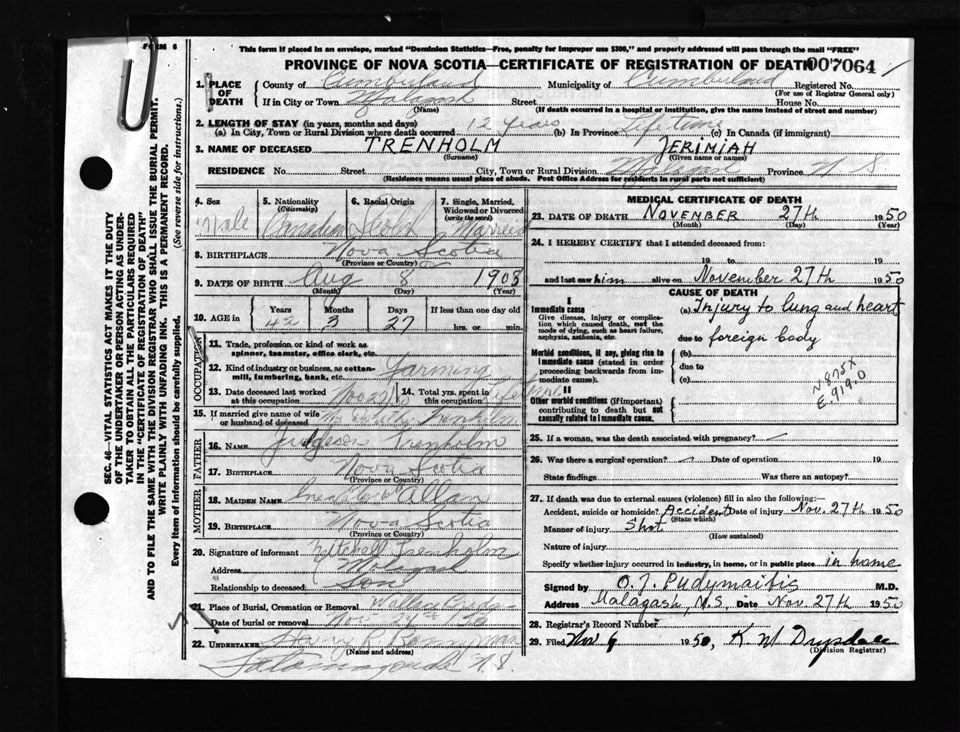 FORM 6
This form if placed in an envelope, marked "Dominion Statistics—Free, penalty for improper use $300," and properly addressed will pass through the mail "FREE"
PROVINCE OF NOVA SCOTIA—CERTIFICATE OF REGISTRATION OF DEATH
007064
1. PLACE OF DEATH
County of Cumberland Municipality of Cumberland Registered No.
(For use of Registrar General only)
If in City or Town Malagash Street House No.
(Name) (If death occurred in a hospital or institution, give the name instead of street and number)
2. LENGTH OF STAY (in years, months and days)
(a) In City, Town or Rural Division where death occurred 12 years (b) In Province Lifetime (c) In Canada (if immigrant)
3. NAME OF DECEASED TRENHOLM JERIMIAH
(Surname) (Given name or names)
RESIDENCE No. Street City, Town or Rural Division Malagash Province N S
(Residence means usual place of abode. Post Office Address for residents in rural parts not sufficient)
4. Sex Male
5. Nationality (Citizenship) Canadian
6. Racial Origin Scotch
7. Single, Married, Widowed or Divorced (write the word) Married
8. BIRTHPLACE Nova Scotia
(Province or Country)
9. DATE OF BIRTH Aug 8 1908
(Month) (Day) (Year)
10. AGE in Years 42 Months 3 Days 27 If less than one day old hrs. or min.
OCCUPATION
11. Trade, profession or kind of work as spinner, teamster, office clerk, etc.
12. Kind of industry or business, as cotton-mill, lumbering, bank, etc. Farming
13. Date deceased last worked at this occupation Nov 27
14. Total yrs. spent in this occupation Lifetime
15. If married give name of wife or husband of deceased Trenholm
FATHER
16. Name Judgeson Trenholm
17. Birthplace Nova Scotia
(Province or Country)
MOTHER
18. Maiden Name Allan
19. Birthplace Nova Scotia
(Province or Country)
20. Signature of informant Mitchell Trenholm
Address Malagash
Relationship to deceased Son
21. Place of Burial, Cremation or Removal Wallace
Date of burial or removal Nov 50
22. Undertaker R.
(Name and address)
Tatamagouche N.S.
MEDICAL CERTIFICATE OF DEATH
23. DATE OF DEATH NOVEMBER 27th 1950
(Month) (Day) (Year)
24. I HEREBY CERTIFY that I attended deceased from:
19 to 19
and last saw him alive on November 27th 1950
CAUSE OF DEATH
I
Immediate cause
Give disease, injury or complication which caused death, not the mode of dying, such as heart failure, asphyxia, asthenia, etc.
(a) Injury to lung and heart
due to foreign body
Morbid conditions, if any, giving rise to immediate cause (stated in order proceeding backwards from immediate cause).
(b)
due to
(c)
II
Other morbid conditions (if important) contributing to death but not causally related to immediate cause.
N 875X
E.919.0
25. If a woman, was the death associated with pregnancy?
26. Was there a surgical operation? Date of operation 19
State findings Was there an autopsy?
27. If death was due to external causes (violence) fill in also the following:—
Accident, suicide or homicide? Accident Date of injury Nov. 27th 1950
(State which)
Manner of injury Shot
(How sustained)
Nature of injury
Specify whether injury occurred in industry, in home, or in public place in home
Signed by O. J. Pudymaitis M.D.
Address Malagash, N.S. Date Nov. 27th 1950
28. Registrar's Record Number
29. Filed Nov 9 1950, K M Drysdale
(Division Registrar)
SEC. 46—VITAL STATISTICS ACT MAKES IT THE DUTY
OF THE UNDERTAKER OR PERSON ACTING AS UNDER-
TAKER TO OBTAIN ALL THE PARTICULARS REQUIRED
IN THE "CERTIFICATE OF REGISTRATION OF DEATH"
AND TO FILE THE SAME WITH THE DIVISION REGISTRAR WHO SHALL ISSUE THE BURIAL PERMIT.
WRITE PLAINLY WITH UNFADING INK. THIS IS A PERMANENT RECORD.
Every item of information should be carefully supplied. (See reverse side for instructions.)